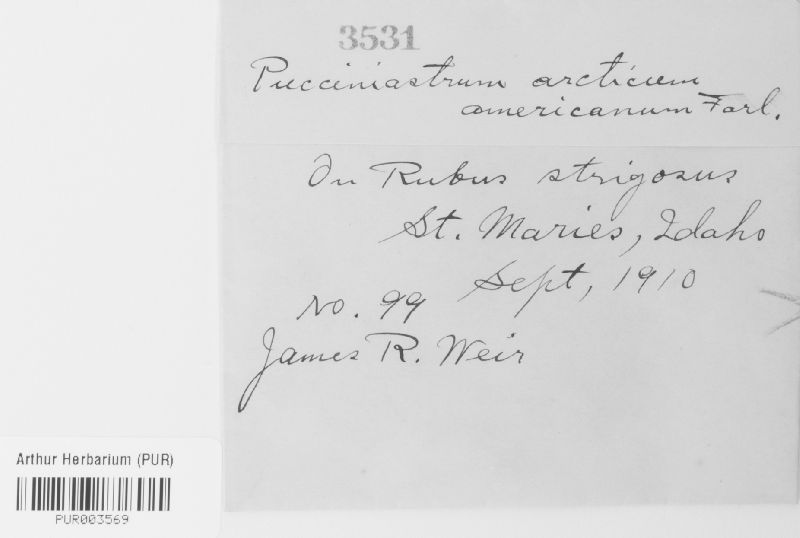 3531
Pucciniastrum arcticum
americanum Farl.
On Rubus strigosus
St. Maries, Idaho
Sept, 1910
No. 99
James R. Weir
Arthur Herbarium (PUR)
PUR003569